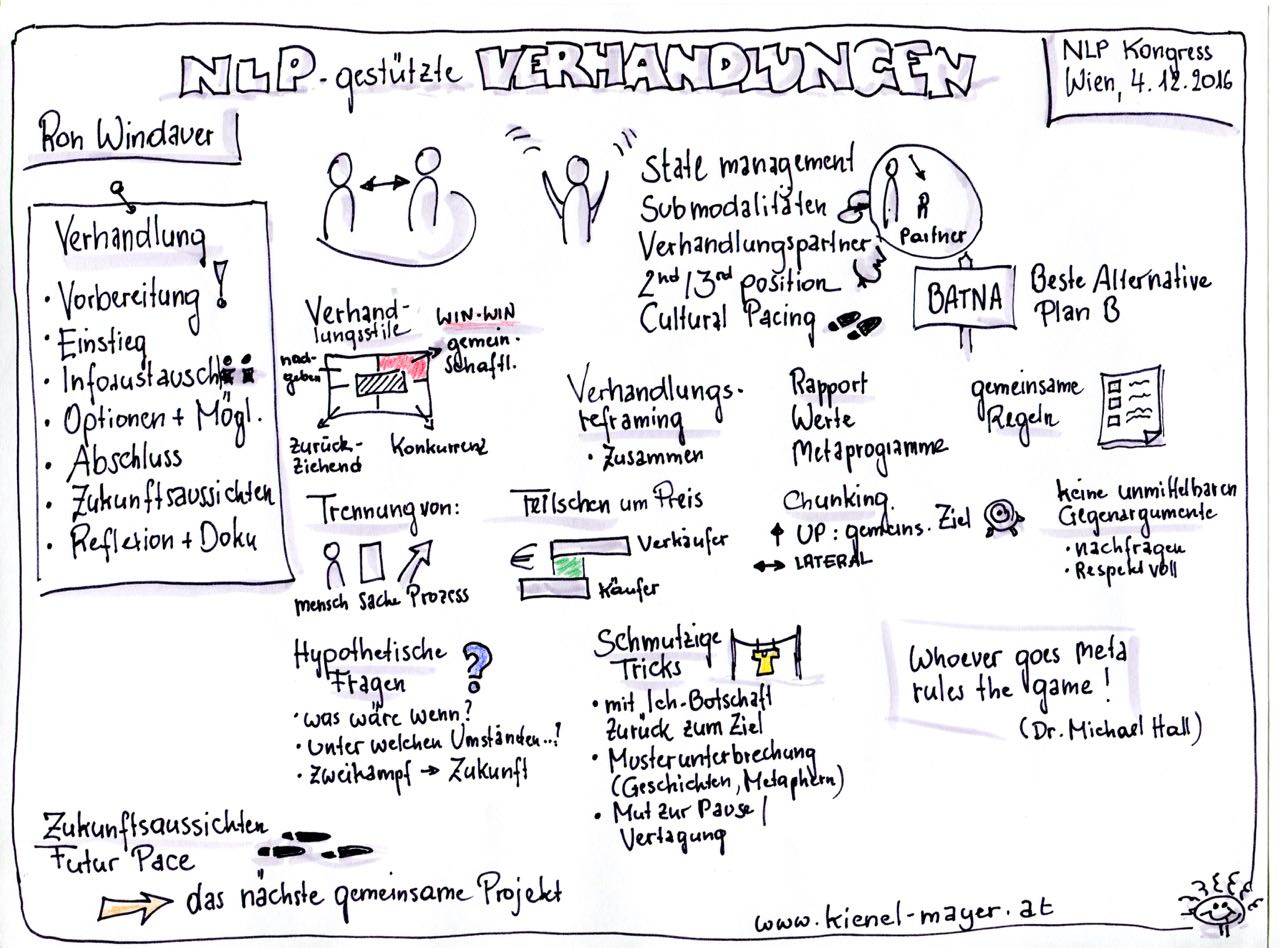 NLP-gestützte VERHANDLUNGEN
NLP Kongress
Wien, 4.12.2016
Ron Windauer
Verhandlung
• Vorbereitung !
• Einstieg
• Infoaustausch
• Optionen + Mögl.
• Abschluss
• Zukunftsaussichten
• Reflexion + Doku
State management
Submodalitäten
Verhandlungspartner
2nd/3rd position
Cultural Pacing
Partner
BATNA
Beste Alternative
Plan B
Verhand-
lungsstile
WIN-WIN
gemein-
schaftl.
nach-
geben
Zurück-
ziehend
Konkurrenz
Verhandlungs-
reframing
• Zusammen
Rapport
Werte
Metaprogramme
gemeinsame
Regeln
Trennung von:
mensch Sache Prozess
Feilschen um Preis
€
Verkäufer
Käufer
Chunking
UP: gemeins. Ziel
LATERAL
keine unmittelbaren
Gegenargumente
• nachfragen
• Respektvoll
Hypothetische
Fragen
?
• was wäre wenn?
• unter welchen Umständen..?
• Zweikampf → Zukunft
Schmutzige
Tricks
• mit Ich-Botschaft
zurück zum Ziel
• Musterunterbrechung
(Geschichten, Metaphern)
• Mut zur Pause /
Vertagung
Whoever goes meta
rules the game!
(Dr. Michael Hall)
Zukunftsaussichten
Futur Pace
das nächste gemeinsame Projekt
www.kienel-mayer.at